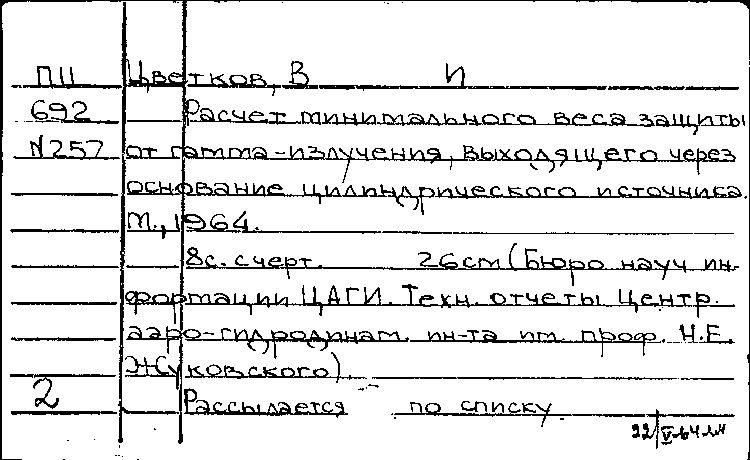 ПП Цветков, В И
692 Расчет минимального веса защиты
N257 от гамма-излучения, выходящего через
основание цилиндрического источника.
М., 1964.
8с. с черт. 26см (Бюро науч ин-
формации ЦАГИ. Техн. отчеты Центр.
аэро-гидродинам. ин-та им. проф. Н.Е.
Жуковского).
2 Рассылается по списку.
22/V-64